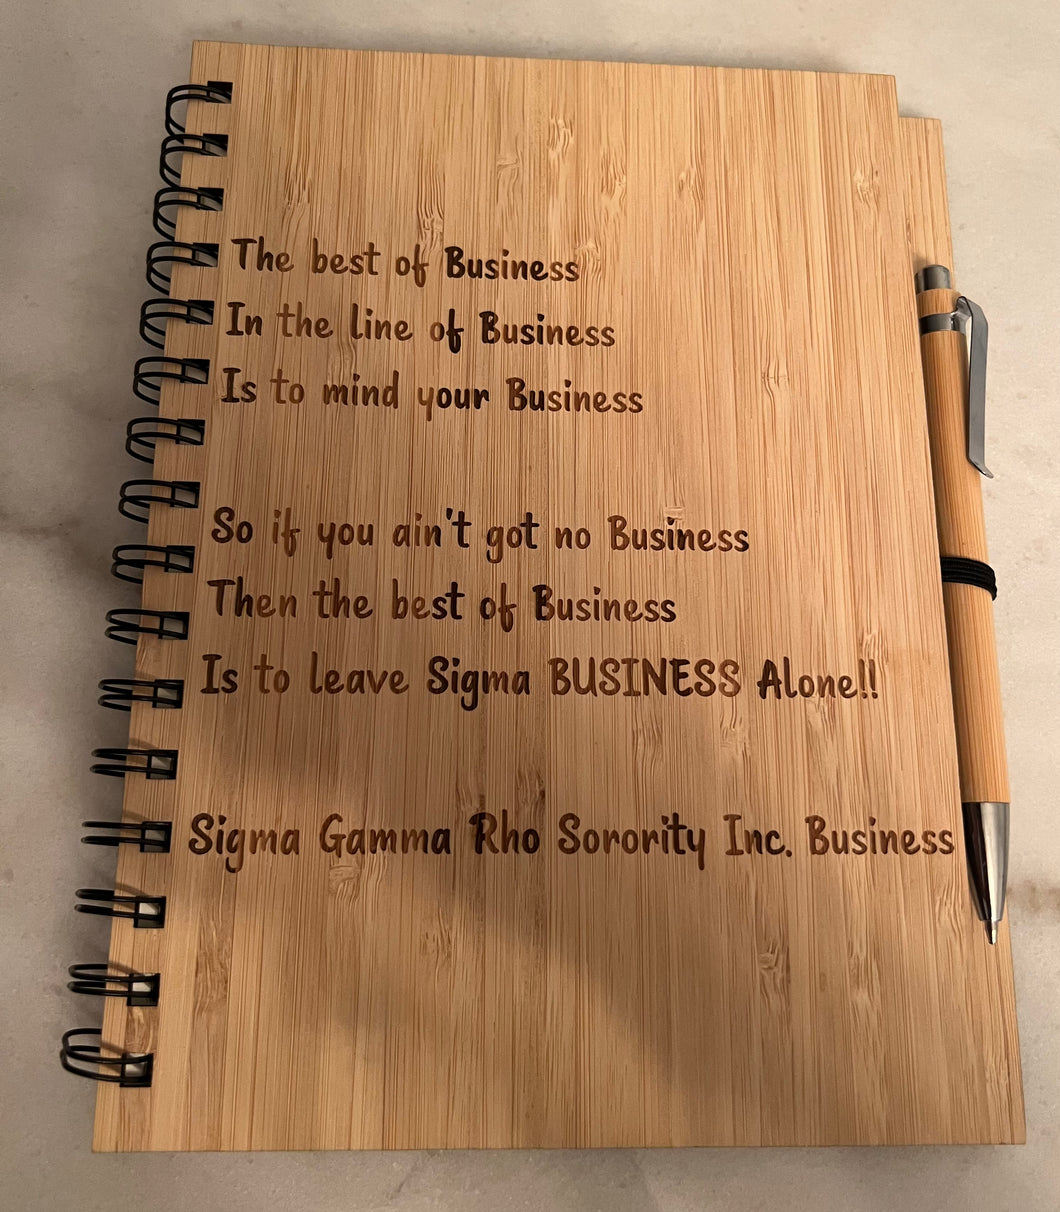 The best of Business
In the line of Business
Is to mind your Business
So if you ain't got no Business
Then the best of Business
Is to leave Sigma BUSINESS Alone!!
Sigma Gamma Rho Sorority Inc. Business